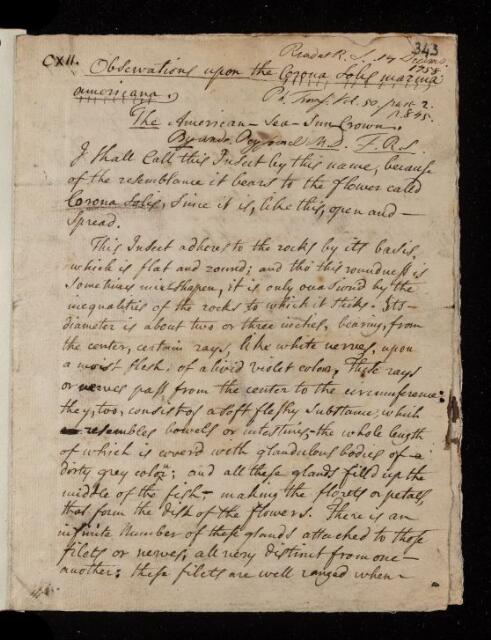 343
CXII. Read at R. S. 14 Decemb. 1758.
Observations upon the Corona Solis marina
Americana.
Ph. Trans. Vol. 50 part 2. p. 845.
The American-Sea-Sun Crown.
By Andr. Peyssonel M.D. F.R.S.
I shall Call this Insect by this name, because
of the resemblance it bears to the flower called
Corona Solis, since it is, like this, open and –
Spread.
This Insect adheres to the rocks by its basis,
which is flat and round; and tho this roundness is
Sometimes misshapen, it is only occasiond by the
inequalities of the rocks to which it sticks. Its –
diameter is about two or three inches, bearing, from
the center, certain rays, like white nerves, upon
a moist flesh, of a livid violet color. These rays
or nerves pass from the center to the circumference:
they, too, consist of a soft fleshy Substance, which
resembles bowels or intestines – the whole length
of which is coverd with glandulous bodies of a
dirty grey color; and all these glands filld up the
middle of the fish – making the florets or petals,
that form the disk of the flowers. There is an
infinite Number of these glands attached to those
filets or nerves, all very distinct from one –
another; these filets are well ranged when –